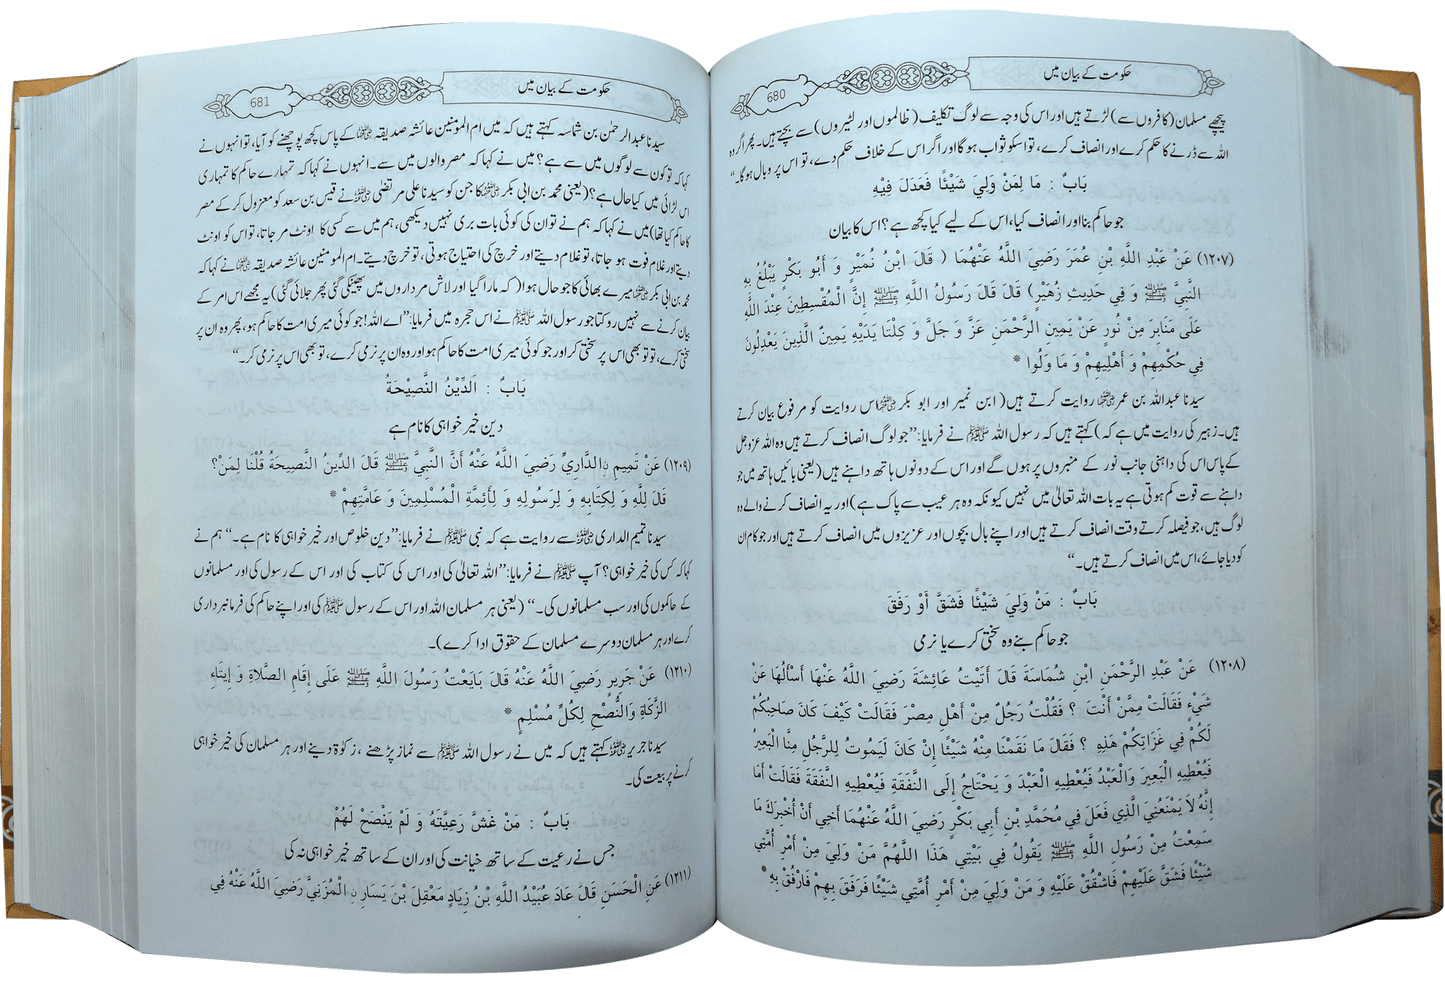 حکومت کے بیان میں
680
پیچھے مسلمان (کافروں سے) لڑتے ہیں اور اس کی وجہ سے لوگ تکلیف (ظالموں اور لٹیروں) سے بچتے ہیں۔ پھر اگر وہ
اللہ سے ڈرنے کا حکم کرے اور انصاف کرے، تو اسکو ثواب ہو گا اور اگر اس کے خلاف حکم دے، تو اس پر وبال ہو گا۔“
بَابٌ : مَا لِمَنْ وَلِيَ شَيْئًا فَعَدَلَ فِيْهِ
جو حاکم بنا اور انصاف کیا، اس کے لیے کیا کچھ ہے؟ اس کا بیان
(۱۲۰۷) عَنْ عَبْدِ اللَّهِ بْنِ عُمَرَ رَضِيَ اللَّهُ عَنْهُمَا ( قَالَ ابْنُ نُمَيْرٍ وَ أَبُو بَكْرٍ يَبْلُغُ بِهِ
النَّبِيَّ ﷺ وَ فِي حَدِيثِ زُهَيْرٍ) قَالَ قَالَ رَسُولُ اللَّهِ ﷺ إِنَّ الْمُقْسِطِينَ عِنْدَ اللَّهِ
عَلَى مَنَابِرَ مِنْ نُورٍ عَنْ يَمِينِ الرَّحْمَنِ عَزَّ وَ جَلَّ وَ كِلْتَا يَدَيْهِ يَمِينٌ الَّذِينَ يَعْدِلُونَ
فِي حُكْمِهِمْ وَ أَهْلِيهِمْ وَ مَا وَلُوا *
سیدنا عبداللہ بن عمر ؓ روایت کرتے ہیں (ابن نمیر اور ابو بکر ؓ اس روایت کو مرفوع بیان کرتے
ہیں۔ زہیر کی روایت میں ہے کہ) کہتے ہیں کہ رسول اللہ ﷺ نے فرمایا: ”جو لوگ انصاف کرتے ہیں وہ اللہ عزوجل
کے پاس اس کی داہنی جانب نور کے منبروں پر ہوں گے اور اس کے دونوں ہاتھ داہنے ہیں (یعنی بائیں ہاتھ میں جو
داہنے سے قوت کم ہوتی ہے یہ بات اللہ تعالیٰ میں نہیں کیونکہ وہ ہر عیب سے پاک ہے) اور یہ انصاف کرنے والے وہ
لوگ ہیں، جو فیصلہ کرتے وقت انصاف کرتے ہیں اور اپنے بال بچوں اور عزیزوں میں انصاف کرتے ہیں اور جو کام ان
کو دیا جائے، اس میں انصاف کرتے ہیں۔“
بَابٌ : مَنْ وَلِيَ شَيْئًا فَشَقَّ أَوْ رَفَقَ
جو حاکم بنے وہ سختی کرے یا نرمی
(۱۲۰۸) عَنْ عَبْدِ الرَّحْمَنِ ابْنِ شُمَاسَةَ قَالَ أَتَيْتُ عَائِشَةَ رَضِيَ اللَّهُ عَنْهَا أَسْأَلُهَا عَنْ
شَيْءٍ فَقَالَتْ مِمَّنْ أَنْتَ ؟ فَقُلْتُ رَجُلٌ مِنْ أَهْلِ مِصْرَ فَقَالَتْ كَيْفَ كَانَ صَاحِبُكُمْ
لَكُمْ فِي غَزَاتِكُمْ هَذِهِ ؟ فَقَالَ مَا نَقَمْنَا مِنْهُ شَيْئًا إِنْ كَانَ لَيَمُوتُ لِلرَّجُلِ مِنَّا الْبَعِيرُ
فَيُعْطِيهِ الْبَعِيرَ وَالْعَبْدُ فَيُعْطِيهِ الْعَبْدَ وَ يَحْتَاجُ إِلَى النَّفَقَةِ فَيُعْطِيهِ النَّفَقَةَ فَقَالَتْ أَمَا
إِنَّهُ لاَ يَمْنَعُنِي الَّذِي فَعَلَ فِي مُحَمَّدِ بْنِ أَبِي بَكْرٍ رَضِيَ اللَّهُ عَنْهُمَا أَخِي أَنْ أُخْبِرَكَ مَا
سَمِعْتُ مِنْ رَسُولِ اللَّهِ ﷺ يَقُولُ فِي بَيْتِي هَذَا اللَّهُمَّ مَنْ وَلِيَ مِنْ أَمْرِ أُمَّتِي
شَيْئًا فَشَقَّ عَلَيْهِمْ فَاشْقُقْ عَلَيْهِ وَ مَنْ وَلِيَ مِنْ أَمْرِ أُمَّتِي شَيْئًا فَرَفَقَ بِهِمْ فَارْفُقْ بِهِ *
حکومت کے بیان میں
681
سیدنا عبدالرحمٰن بن شماسہ کہتے ہیں کہ میں ام المومنین عائشہ صدیقہ ؓ کے پاس کچھ پوچھنے کو آیا، تو انہوں نے
کہا کہ تو کون سے لوگوں میں سے ہے؟ میں نے کہا کہ مصر والوں میں سے۔ انہوں نے کہا کہ تمہارے حاکم کا تمہاری
اس لڑائی میں کیا حال ہے؟ (یعنی محمد بن ابی بکر ؓ کا جن کو سیدنا علی مرتضٰی ؓ نے قیس بن سعد کو معزول کر کے مصر
کا حاکم کیا تھا) میں نے کہا کہ ہم نے تو ان کی کوئی بات بری نہیں دیکھی، ہم میں سے کسی کا اونٹ مر جاتا، تو اس کو اونٹ
دیتے اور غلام فوت ہو جاتا، تو غلام دیتے اور خرچ کی احتیاج ہوتی، تو خرچ دیتے۔ ام المومنین عائشہ صدیقہ ؓ نے کہا کہ
محمد بن ابی بکر ؓ میرے بھائی کا جو حال ہوا (کہ مارا گیا اور لاش مرداروں میں پھینکی گئی پھر جلائی گئی) یہ مجھے اس امر کے
بیان کرنے سے نہیں روکتا جو رسول اللہ ﷺ نے اس حجرہ میں فرمایا: ”اے اللہ! جو کوئی میری امت کا حاکم ہو، پھر وہ ان پر
سختی کرے، تو تو بھی اس پر سختی کر اور جو کوئی میری امت کا حاکم ہو اور وہ ان پر نرمی کرے، تو بھی اس پر نرمی کر۔“
بَابٌ : اَلدِّيْنُ النَّصِيْحَةُ
دین خیر خواہی کا نام ہے
(۱۲۰۹) عَنْ تَمِيمِ نِ الدَّارِيِّ رَضِيَ اللَّهُ عَنْهُ أَنَّ النَّبِيَّ ﷺ قَالَ الدِّينُ النَّصِيحَةُ قُلْنَا لِمَنْ؟
قَالَ لِلَّهِ وَ لِكِتَابِهِ وَ لِرَسُولِهِ وَ لِأَئِمَّةِ الْمُسْلِمِينَ وَ عَامَّتِهِمْ *
سیدنا تمیم الداری ؓ سے روایت ہے کہ نبی ﷺ نے فرمایا: ”دین خلوص اور خیر خواہی کا نام ہے۔“ ہم نے
کہا کہ کس کی خیر خواہی؟ آپ ﷺ نے فرمایا: ”اللہ تعالیٰ کی اور اس کی کتاب کی اور اس کے رسول کی اور مسلمانوں
کے حاکموں کی اور سب مسلمانوں کی۔“ (یعنی ہر مسلمان اللہ اور اس کے رسول ﷺ کی اور اپنے حاکم کی فرمانبرداری
کرے اور ہر مسلمان دوسرے مسلمان کے حقوق ادا کرے)۔
(۱۲۱۰) عَنْ جَرِيرٍ رَضِيَ اللَّهُ عَنْهُ قَالَ بَايَعْتُ رَسُولَ اللَّهِ ﷺ عَلَى إِقَامِ الصَّلاَةِ وَ إِيتَاءِ
الزَّكَاةِ وَالنُّصْحِ لِكُلِّ مُسْلِمٍ *
سیدنا جریر ؓ کہتے ہیں کہ میں نے رسول اللہ ﷺ سے نماز پڑھنے ، زکوٰۃ دینے اور ہر مسلمان کی خیر خواہی
کرنے پر بیعت کی۔
بَابٌ : مَنْ غَشَّ رَعِيَّتَهُ وَ لَمْ يَنْصَحْ لَهُمْ
جس نے رعیت کے ساتھ خیانت کی اور ان کے ساتھ خیر خواہی نہ کی
(۱۲۱۱) عَنِ الْحَسَنِ قَالَ عَادَ عُبَيْدُ اللَّهِ بْنُ زِيَادٍ مَعْقِلَ بْنَ يَسَارِ نِ الْمُزَنِيَّ رَضِيَ اللَّهُ عَنْهُ فِي